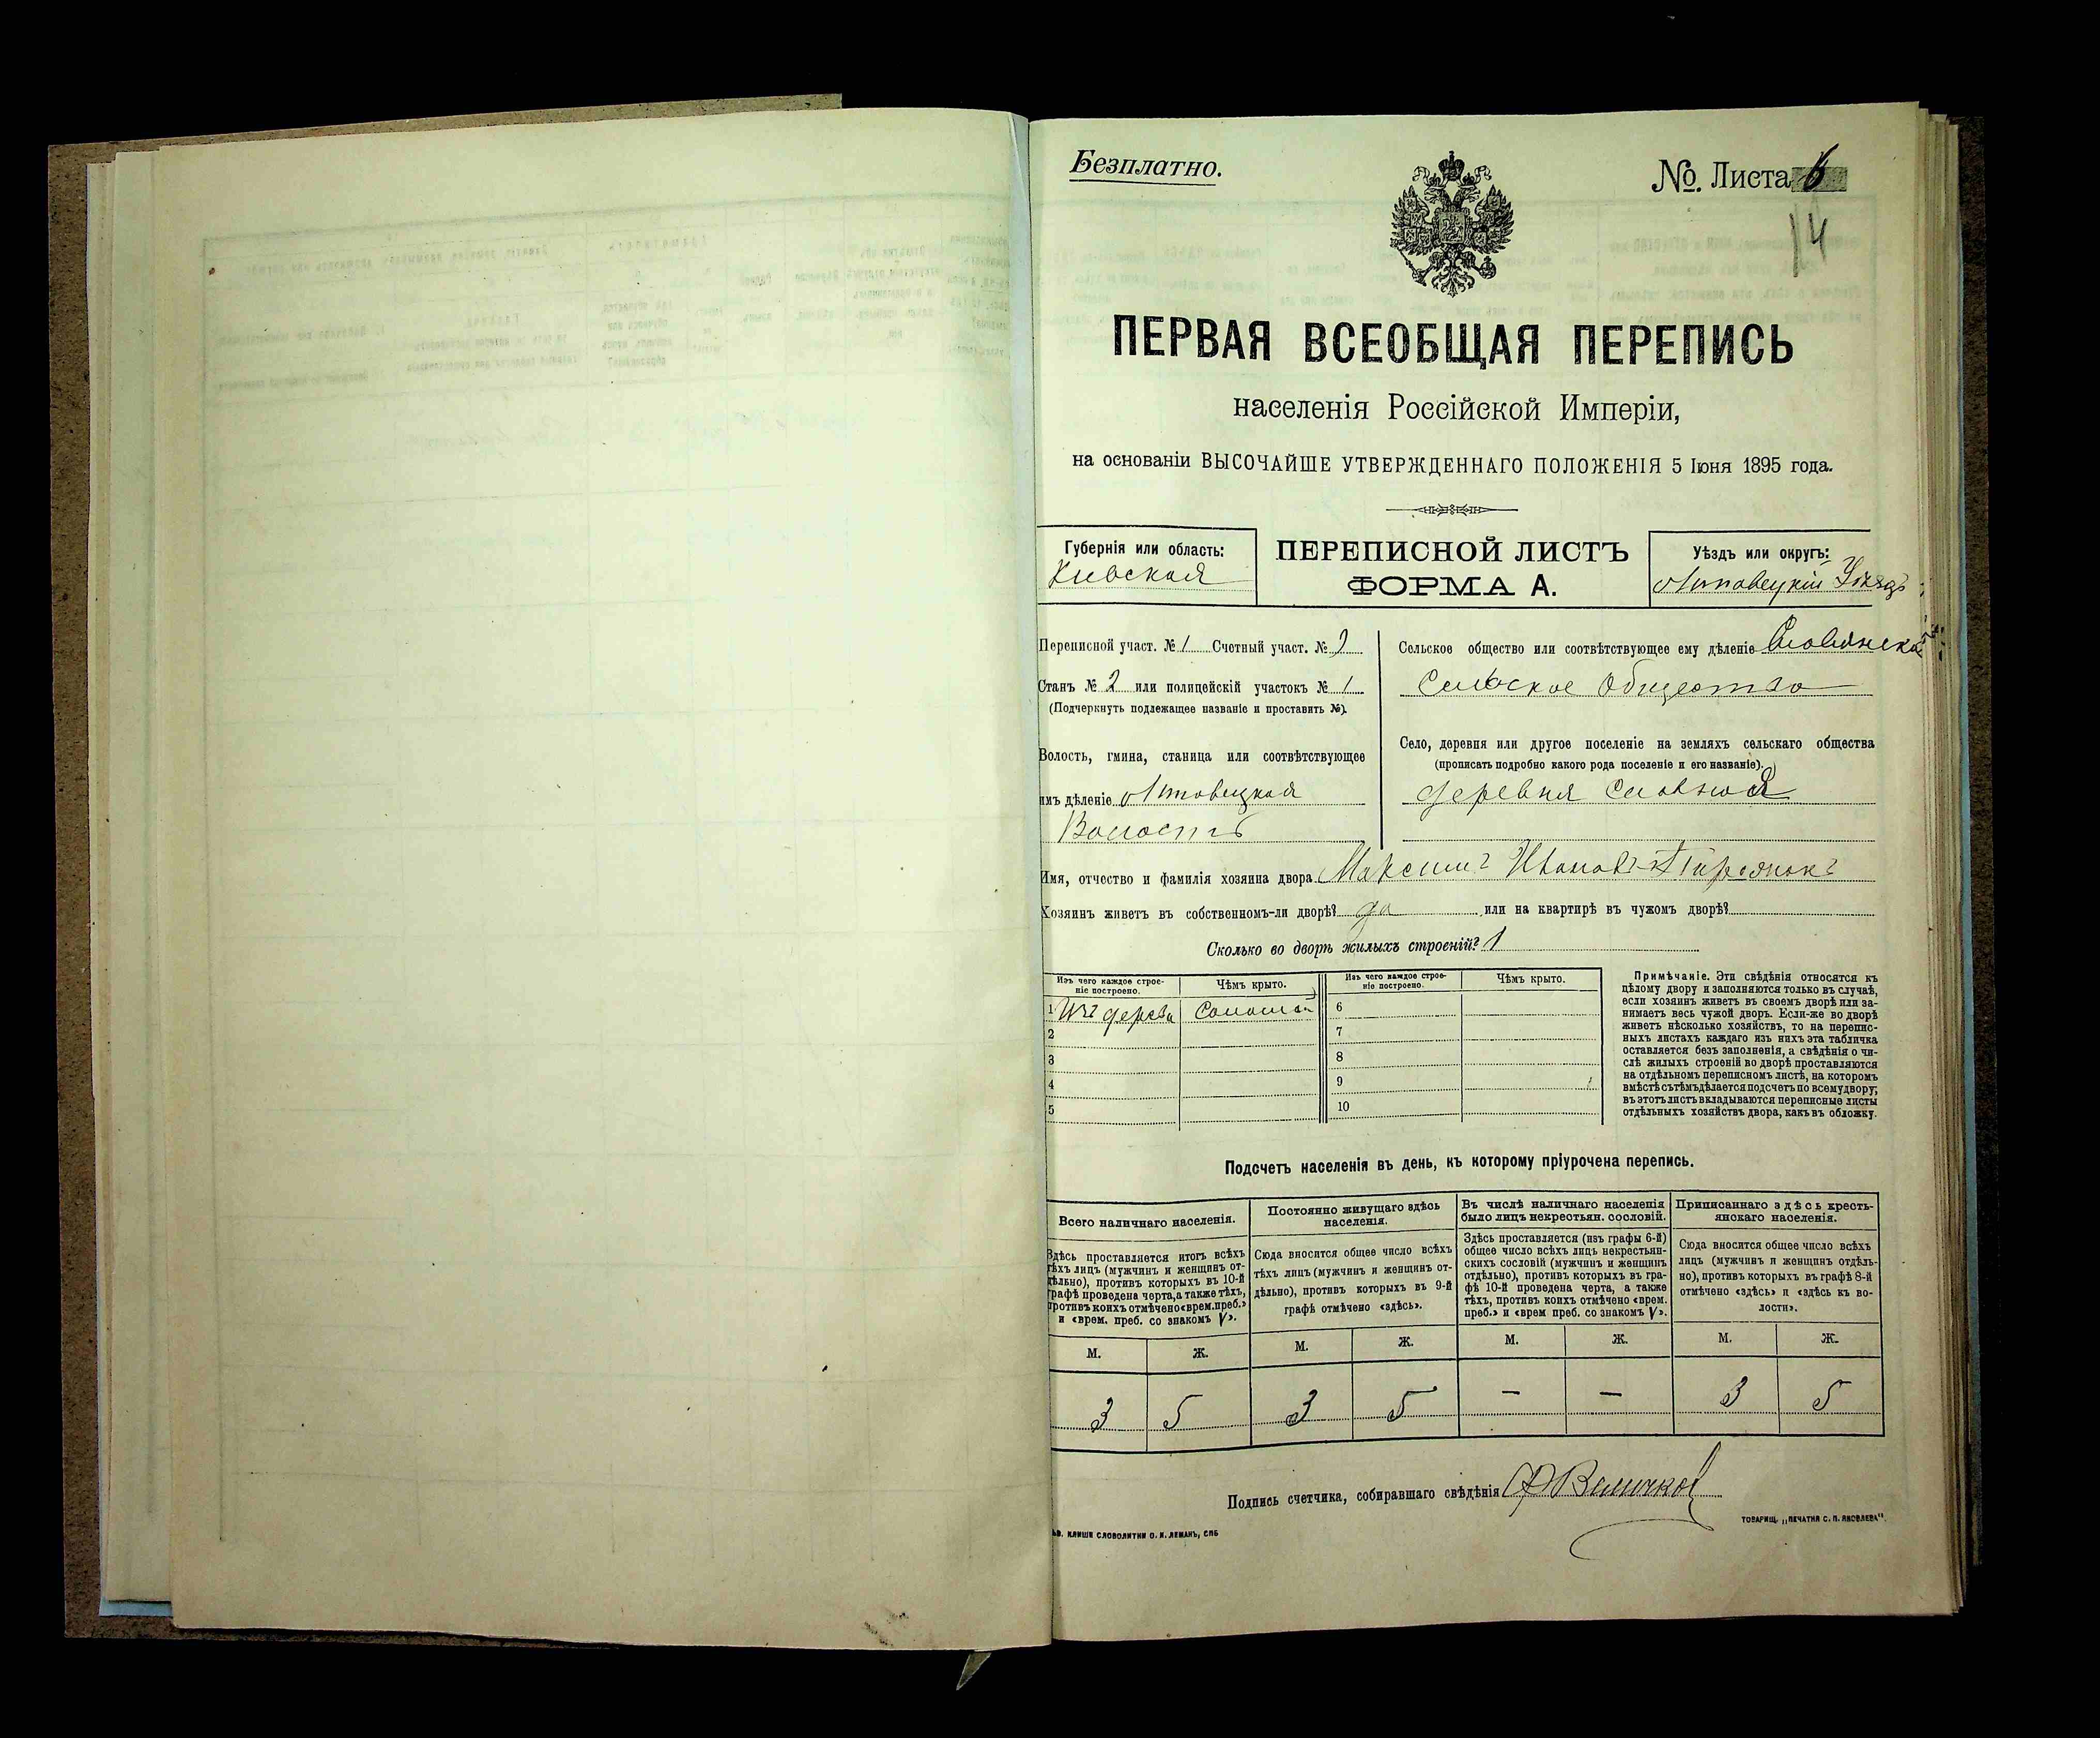 Безплатно.
№. Листа 6
14
ПЕРВАЯ ВСЕОБЩАЯ ПЕРЕПИСЬ
населенія Россійской Имперіи,
на основаніи ВЫСОЧАЙШЕ УТВЕРЖДЕННАГО ПОЛОЖЕНІЯ 5 Іюня 1895 года.
Губернія или область:
Кіевская
ПЕРЕПИСНОЙ ЛИСТЪ
ФОРМА А.
Уѣздъ или округъ:
Липовецкій Уѣздъ
Переписной участ. № 1 Счетный участ. № 2
Станъ № 2 или полицейскій участокъ № 1
(Подчеркнуть подлежащее названіе и проставить №).
Волость, гмина, станица или соотвѣтствующее
имъ дѣленіе Липовецкая
Волость
Сельское общество или соотвѣтствующее ему дѣленіе
Сельское Общество
Село, деревня или другое поселеніе на земляхъ сельскаго общества
(прописать подробно какого рода поселеніе и его названіе).
деревня
Имя, отчество и фамилія хозяина двора Максимъ Ивановъ
Хозяинъ живетъ въ собственномъ-ли дворѣ? да или на квартирѣ въ чужомъ дворѣ?
Сколько во дворѣ жилыхъ строеній? 1
Изъ чего каждое строе-
ніе построено.
Чѣмъ крыто.
Изъ чего каждое строе-
ніе построено.
Чѣмъ крыто.
1 Изъ дерева Соломой 6
2 7
3 8
4 9
5 10
Примѣчаніе. Эти свѣдѣнія относятся къ
цѣлому двору и заполняются только въ случаѣ,
если хозяинъ живетъ въ своемъ дворѣ или за-
нимаетъ весь чужой дворъ. Если-же во дворѣ
живетъ нѣсколько хозяйствъ, то на перепис-
ныхъ листахъ каждаго изъ нихъ эта табличка
оставляется безъ заполненія, а свѣдѣнія о чи-
слѣ жилыхъ строеній во дворѣ проставляются
на отдѣльномъ переписномъ листѣ, на которомъ
вмѣстѣ съ тѣмъ дѣлается подсчетъ по всему двору;
въ этотъ листъ вкладываются переписные листы
отдѣльныхъ хозяйствъ двора, какъ въ обложку.
Подсчетъ населенія въ день, къ которому пріурочена перепись.
Всего наличнаго населенія.
Здѣсь проставляется итогъ всѣхъ
тѣхъ лицъ (мужчинъ и женщинъ от-
дѣльно), противъ которыхъ въ 10-й
графѣ проведена черта, а также тѣхъ,
противъ коихъ отмѣчено «врем. преб.»
и «врем. преб. со знакомъ V».
Постоянно живущаго здѣсь
населенія.
Сюда вносится общее число всѣхъ
тѣхъ лицъ (мужчинъ и женщинъ от-
дѣльно), противъ которыхъ въ 9-й
графѣ отмѣчено «здѣсь».
Въ числѣ наличнаго населенія
было лицъ некрестьян. сословій.
Здѣсь проставляется (изъ графы 6-й)
общее число всѣхъ лицъ некрестьян-
скихъ сословій (мужчинъ и женщинъ
отдѣльно), противъ которыхъ въ гра-
фѣ 10-й проведена черта, а также
тѣхъ, противъ коихъ отмѣчено «врем.
преб.» и «врем преб. со знакомъ V».
Приписаннаго здѣсь кресть-
янскаго населенія.
Сюда вносится общее число всѣхъ
лицъ (мужчинъ и женщинъ отдѣль-
но), противъ которыхъ въ графѣ 8-й
отмѣчено «здѣсь» и «здѣсь къ во-
лости».
М. Ж. М. Ж. М. Ж. М. Ж.
3 5 3 5 — — 3 5
Подпись счетчика, собиравшаго свѣдѣнія
КЛИШЕ СЛОВОЛИТНИ О. И. ЛЕМАНЪ, СПБ
ТОВАРИЩ. „ПЕЧАТНЯ С. П. ЯКОВЛЕВА".